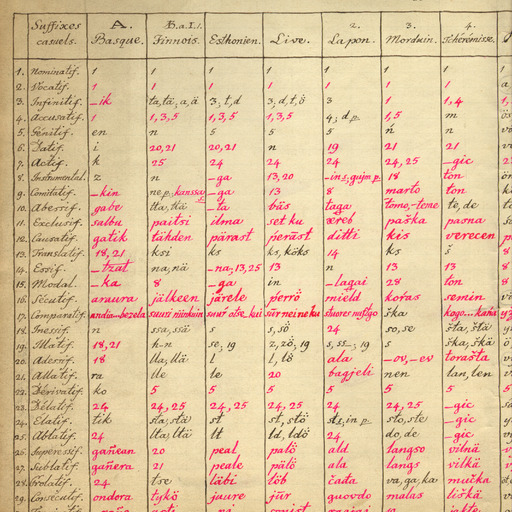 Suffixes casuels. A. Basque. B.a.I.1. Finnois. Esthonien. Live. 2. Lapon. 3. Mordwin. 4. Tchérémisse.
1. Nominatif. 1 1 1 1 1 1 1
2. Vocatif. 1 1 1 1 1 1 1
3. Infinitif. -ik ta, tä, a, ä 3; t, d 3; d, t, ö 3 1 1, 4
4. Accusatif. 1 1, 3, 5 1, 3, 5 1, 3, 5 4; d p. 1, 5 m
5. Génitif. en n 5 5 5 ń n
6. Datif. i 20, 21 20, 21 n 19 21 21
7. Actif. k 25 24 24 24 24, 25 -gic
8. Instrumental. z n -ga 13, 20 -in s., gujm p. 18 ton
9. Comitatif. -kin ne p., kanssa s. -ga 13 8 marto ton
10. Abessif. gabe tta, ttä -ta bäs taga tome, -teme te, de
11. Exclusif. salbu paitsi ilma set ku æreb paška pasna
12. Causatif. gatik tähden pärast peräst ditti kis verecen
13. Translatif. 18, 21 ksi ks ks, köks 14 ks š
14. Essif. -tzat na, nä -na, 13, 25 13 n 13 13
15. Modal. -ka 8 -ga in -lagai 28 ton
16. Sécutif. araura jälkeen järele perrö mield koras semin
17. Comparatif. andia...bezela suuri niinkuin suur otse, kui sür neine ku ška
18. Inessif. n ssa, ssä s s, sö 24 so, se šta, štä
19. Illatif. 18, 21 h-n se; 19 z, zö, 19 s, ss-; 19 s ška, škä
20. Adessif. 18 lla, llä l l, lö ala -ov, -ev torašta
21. Allatif. ra lle le 20 bagjeli nen lan, len
22. Dérivatif. ko 5 5 5 5 5 5
23. Délatif. 24 24, 25 24, 25 24, 25 24 24, 25 -gic
24. Elatif. tik sta, stä st st, stö st s., in p. sto, ste -gic
25. Ablatif. 24 lta, ltä lt ld, ldö 24 do, de -gic
26. Superessif. gañean 20 peal palö ald langso vilnä
27. Sublatif. gañera 21 peale pälö ala langs vilkä
28. Prolatif. 24 tse läbi löb čađa va, ga, ka mučka
29. Consécutif. ondora tykö juure jür guovdo malas liškä